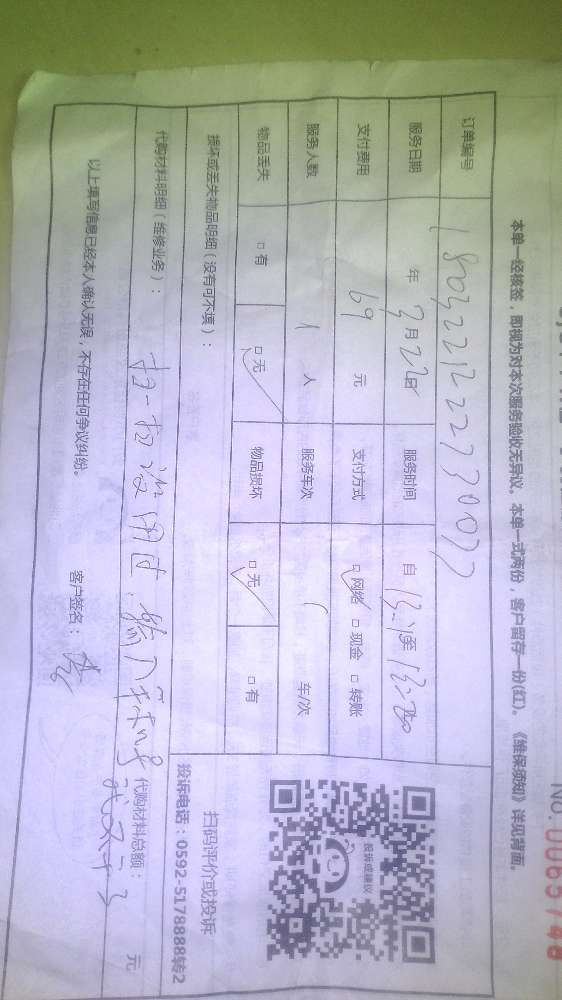 No. 0065748
本单一经核签，即视为对本次服务验收无异议。本单一式两份，客户留存一份(红)。《维保须知》详见背面。
订单编号
服务日期 年 3月22日 服务时间 自 至
支付费用 69 元 支付方式 □ 网络 □ 现金 □ 转账
服务人数 1 人 服务车次 1 车/次
物品丢失 □ 有 □ 无 物品损坏 □ 无 □ 有
损坏或丢失物品明细（没有可不填）：
投诉或建议
扫码评价或投诉
投诉电话：0592-5178888转2
代购材料明细（维修业务）：
扫一扫没用过
代购材料总额： 元
以上填写信息已经本人确认无误，不存在任何争议纠纷。
客户签名：